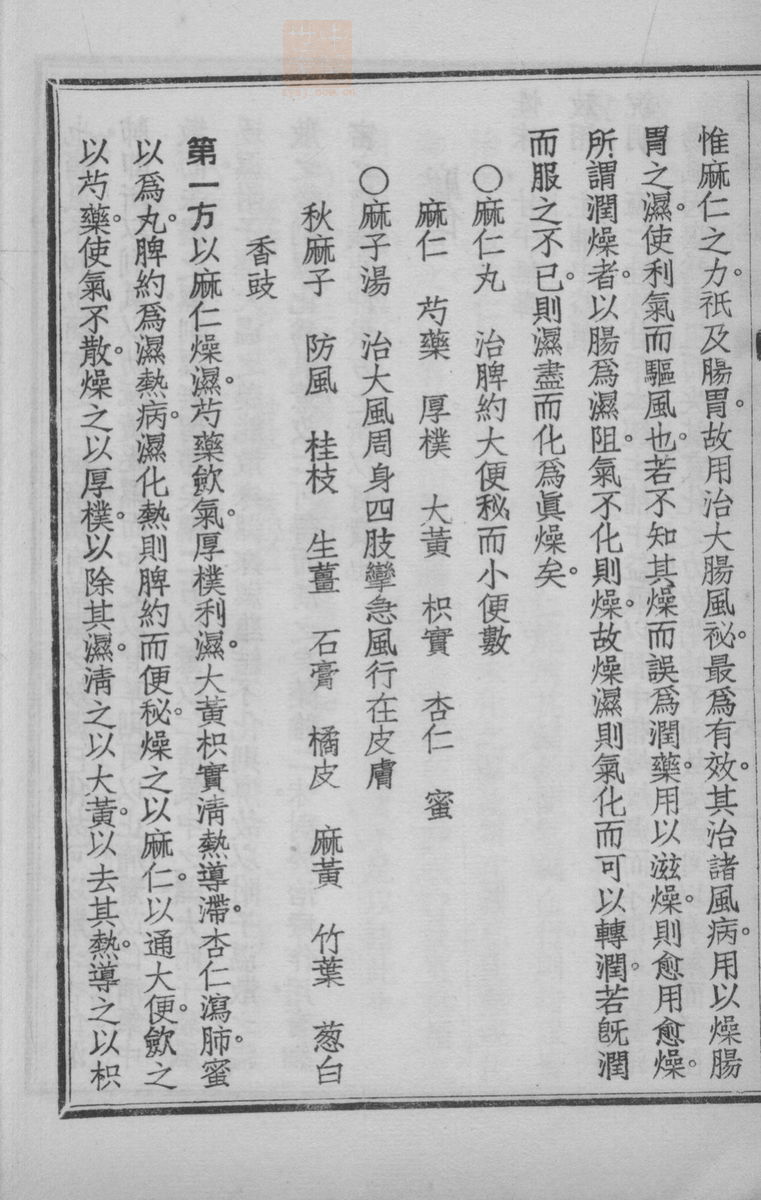 惟麻仁之力。祇及腸胃。故用治大腸風祕。最爲有效。其治諸風病。用以燥腸
胃之濕。使利氣而驅風也。若不知其燥而誤爲潤藥。用以滋燥。則愈用愈燥。
所謂潤燥者。以腸爲濕阻。氣不化則燥。故燥濕則氣化而可以轉潤。若旣潤
而服之不已。則濕盡而化爲眞燥矣。
○麻仁丸 治脾約大便秘而小便數
麻仁 芍藥 厚樸 大黃 枳實 杏仁 蜜
○麻子湯 治大風周身四肢攣急風行在皮膚
秋麻子 防風 桂枝 生薑 石膏 橘皮 麻黃 竹葉 葱白
香豉
第一方以麻仁燥濕。芍藥歛氣。厚樸利濕。大黃枳實淸熱導滯。杏仁瀉肺。蜜
以爲丸。脾約爲濕熱病。濕化熱則脾約而便秘。燥之以麻仁。以通大便。歛之
以芍藥。使氣不散。燥之以厚樸。以除其濕。淸之以大黃。以去其熱。導之以枳